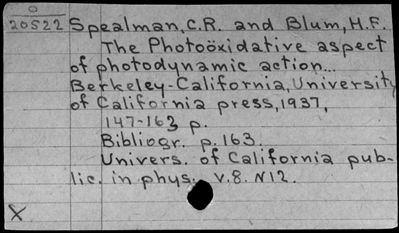 O
20522
Spealman, C.R. and Blum, H.F.
The Photoöxidative aspect
of photodynamic action...
Berkeley-California, University
of California press, 1937,
147-163 p.
Bibliogr. p. 163.
Univers. of California pub-
lic. in phys. v.8. N12.
X